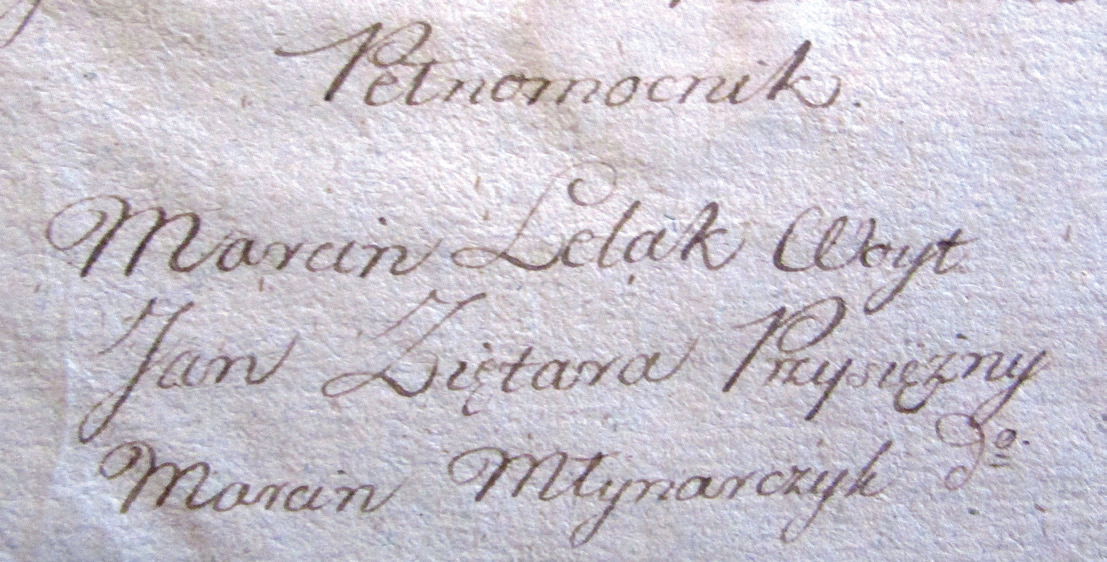 Pełnomocnik.
Marcin Lelak Woyt
Jan Ziętara Przysiężny
Marcin Młynarczyk do.